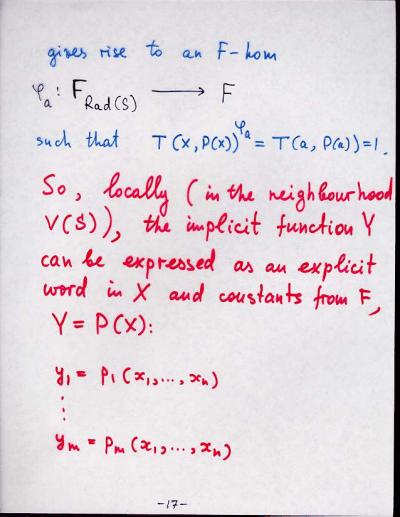 gives rise to an F-hom
φₐ : F_Rad(S) ⟶ F
such that T(x, P(x))^φₐ = T(a, P(a)) = 1.
So, locally (in the neighbourhood
V(S)), the implicit function Y
can be expressed as an explicit
word in X and constants from F,
Y = P(X):
y₁ = p₁(x₁,..., xₙ)
⋮
yₘ = pₘ(x₁,..., xₙ)
-17-